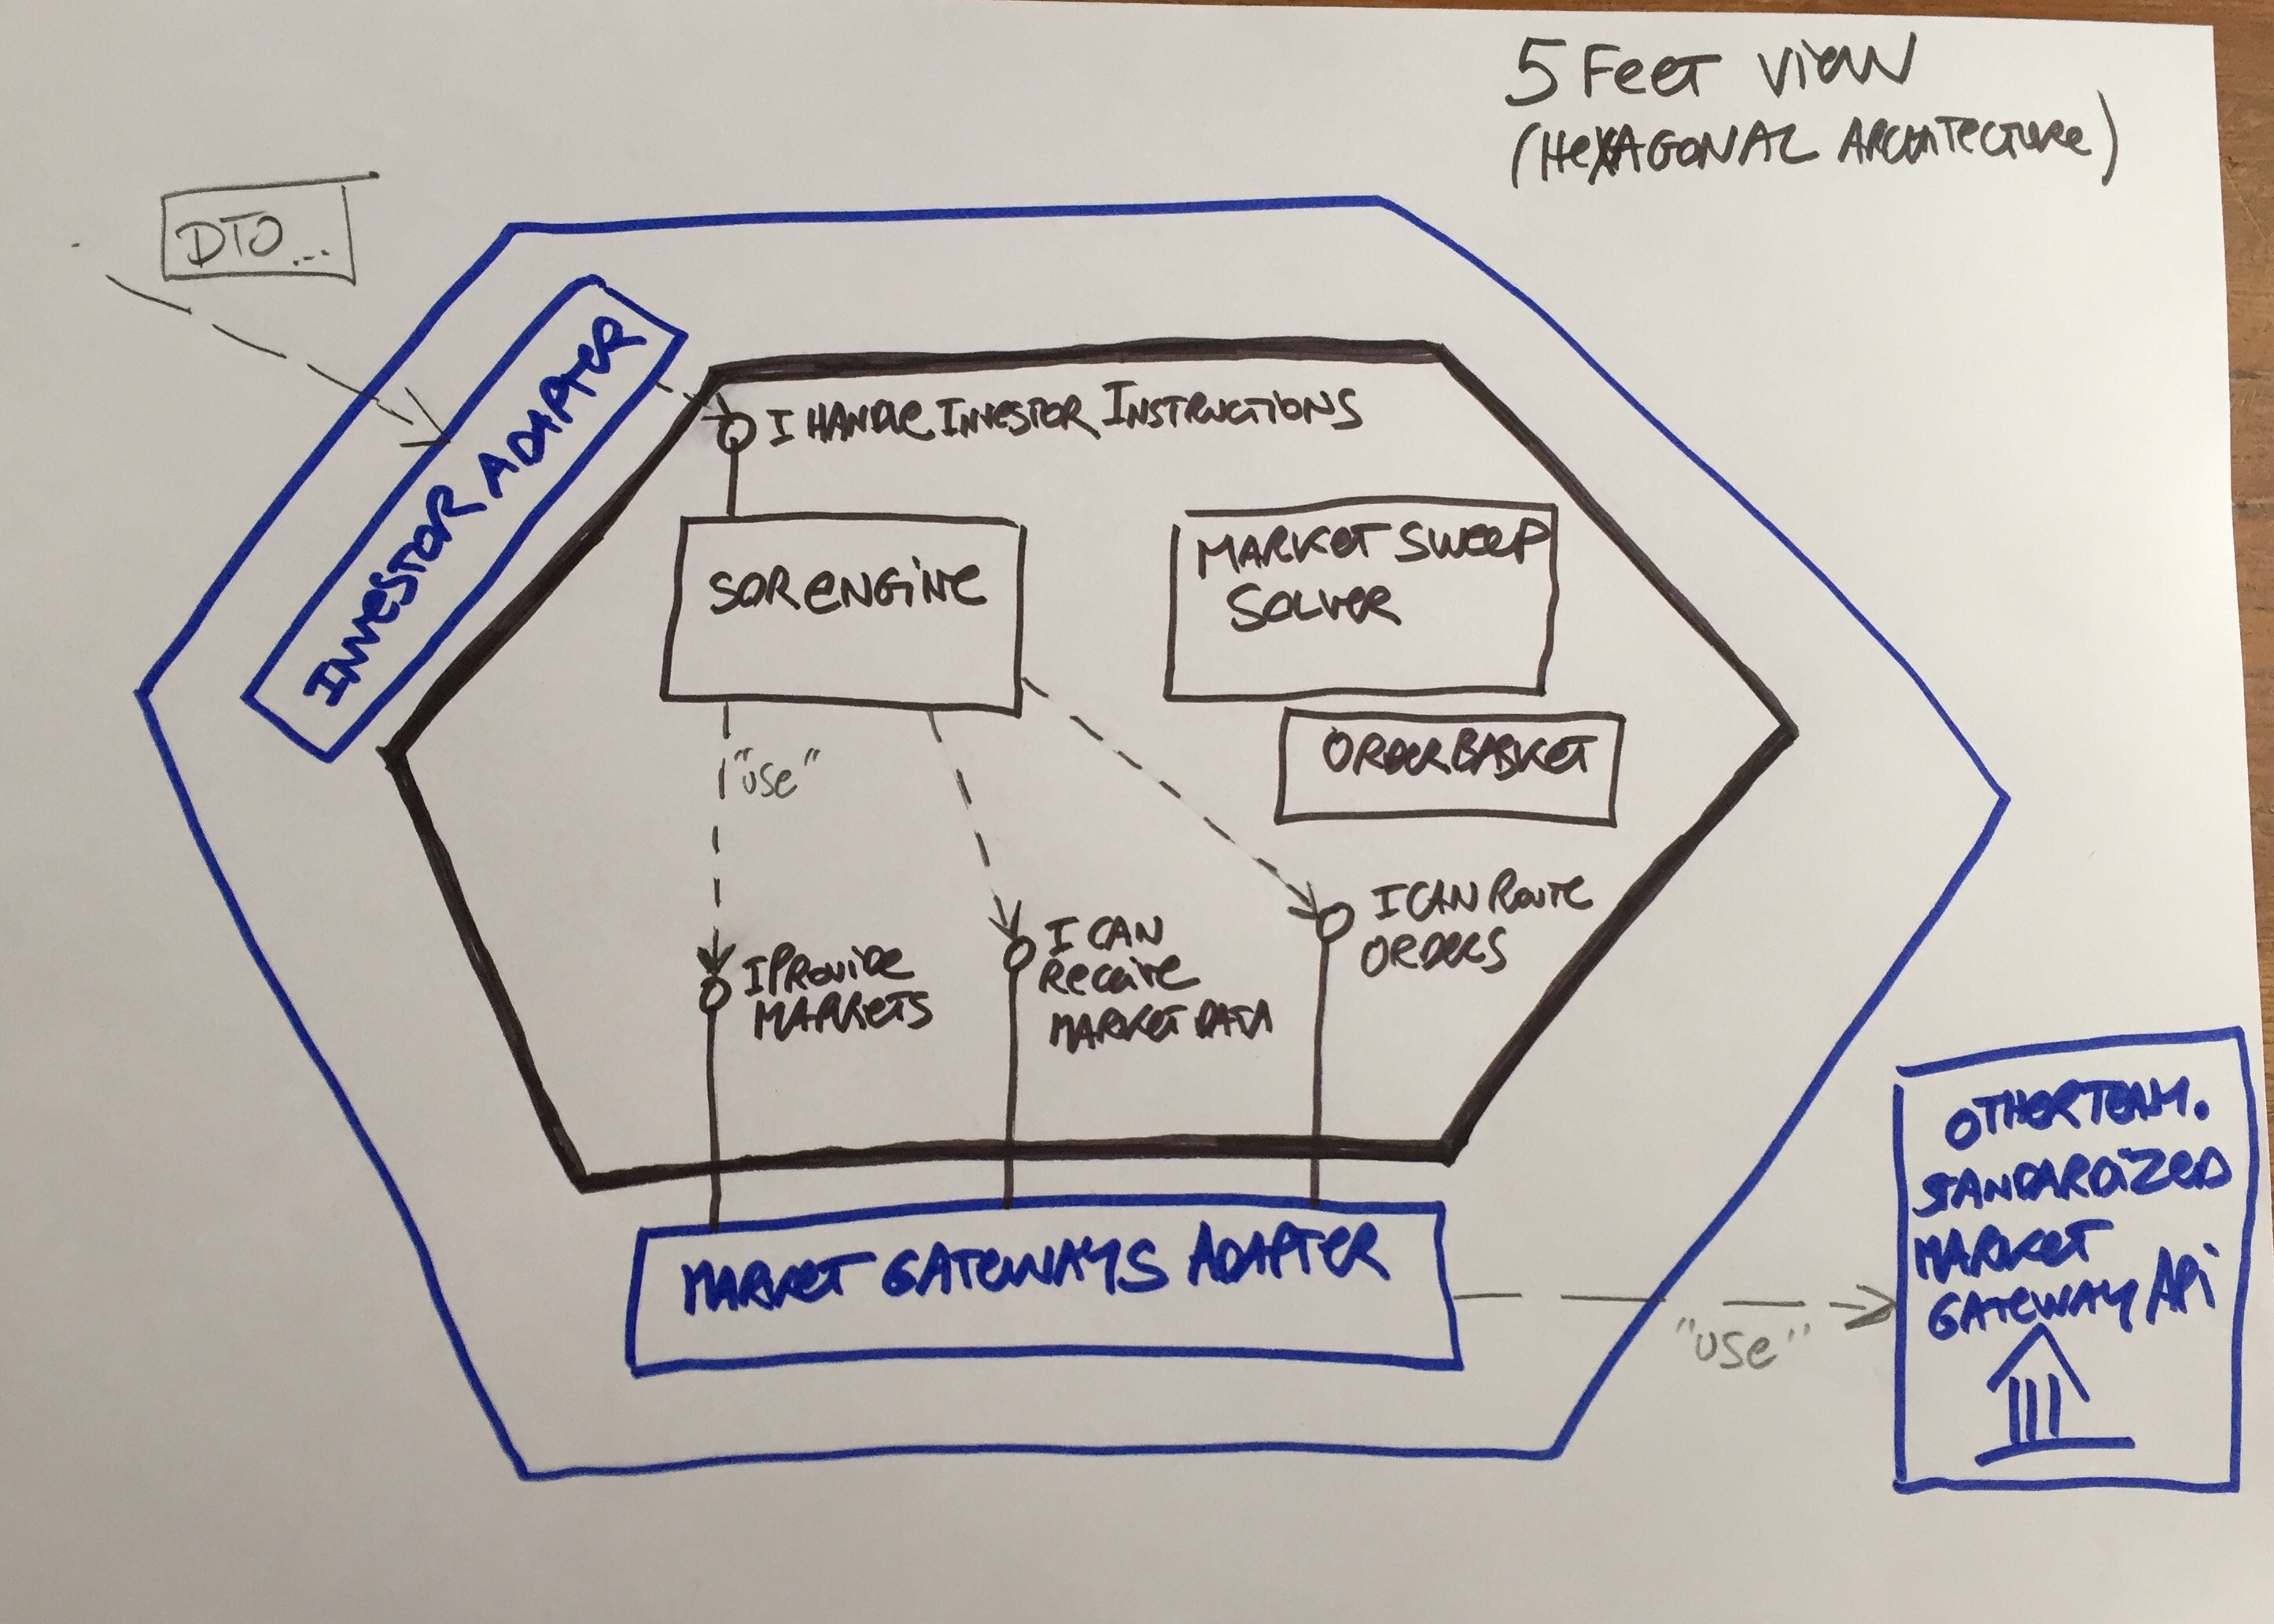 5 FEET VIEW
(HEXAGONAL ARCHITECTURE)
DTO...
INVESTOR ADAPTER
I HANDLE INVESTOR INSTRUCTIONS
SOR ENGINE
MARKET SWEEP
SOLVER
ORDER BASKET
"USE"
I CAN ROUTE
ORDERS
I PROVIDE
MARKETS
I CAN
RECEIVE
MARKET DATA
MARKET GATEWAYS ADAPTER
"USE"
OTHER TEAM.
STANDARDIZED
MARKET
GATEWAY API